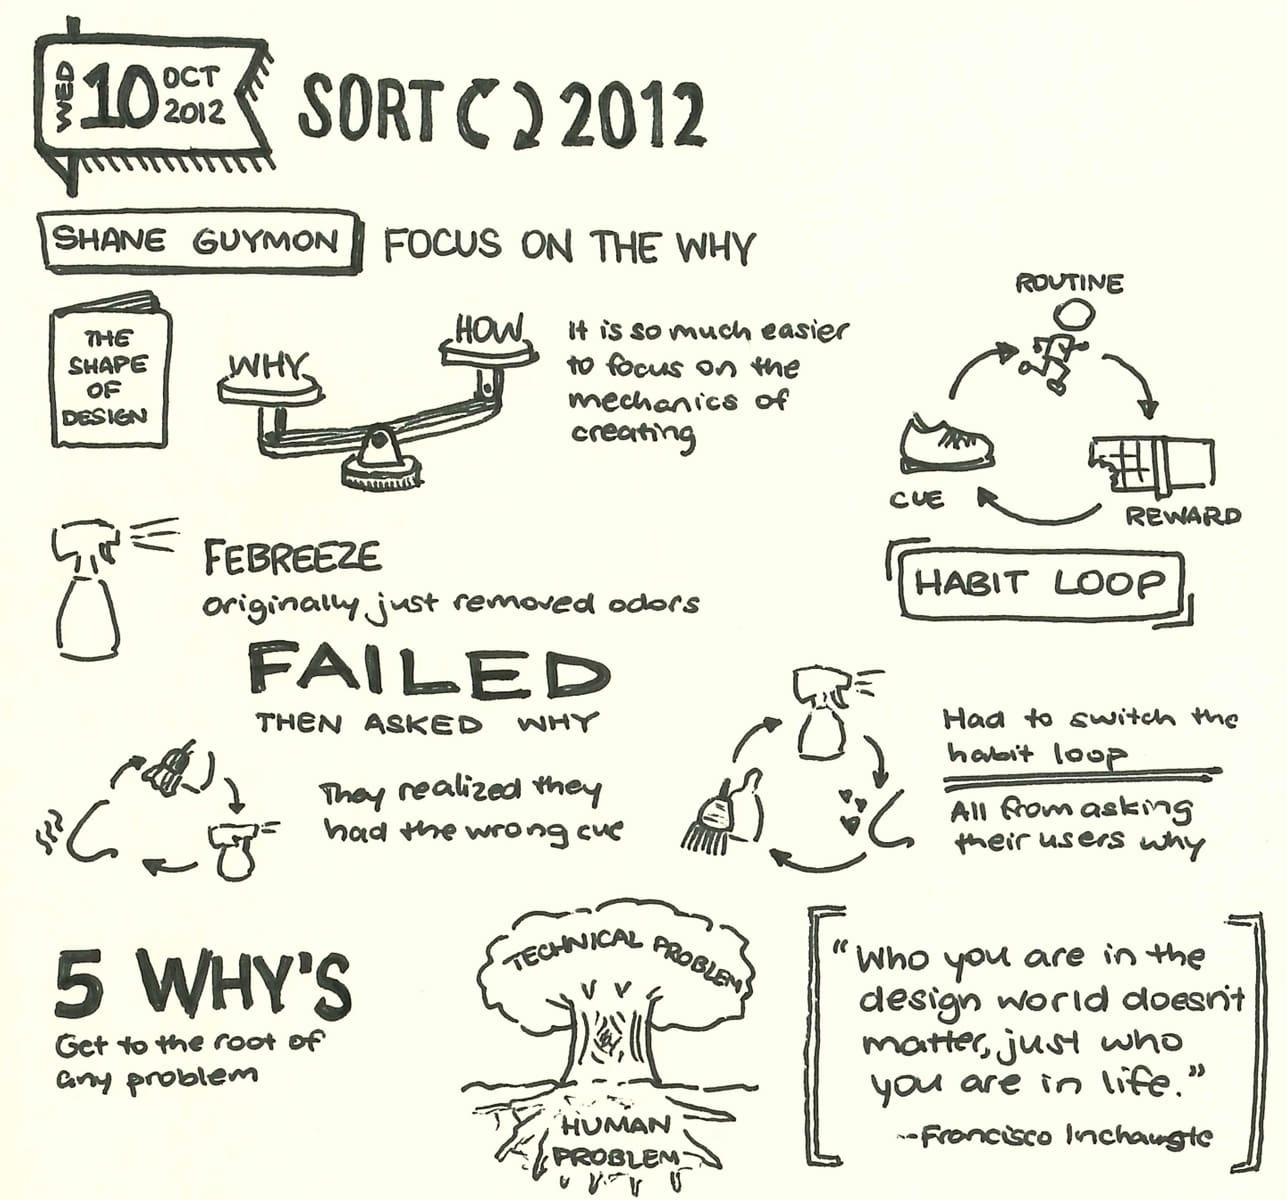 WED 10 OCT 2012
SORT 2012
SHANE GUYMON
FOCUS ON THE WHY
THE
SHAPE
OF
DESIGN
WHY
HOW
It is so much easier
to focus on the
mechanics of
creating
ROUTINE
CUE
REWARD
HABIT LOOP
FEBREEZE
originally just removed odors
FAILED
THEN ASKED WHY
They realized they
had the wrong cue
Had to switch the
habit loop
All from asking
their users why
5 WHY'S
Get to the root of
any problem
TECHNICAL PROBLEM
HUMAN
PROBLEM
"Who you are in the
design world doesn't
matter, just who
you are in life."
--Francisco